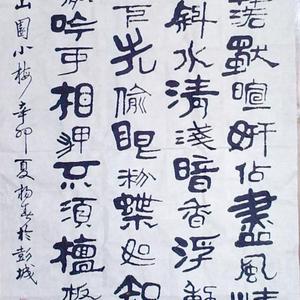 落獨暄妍佔盡風情
斜水清淺暗香浮動
下先偷眼粉蝶如知
吟可相狎不須檀板
山園小梅 辛卯夏楊於彭城